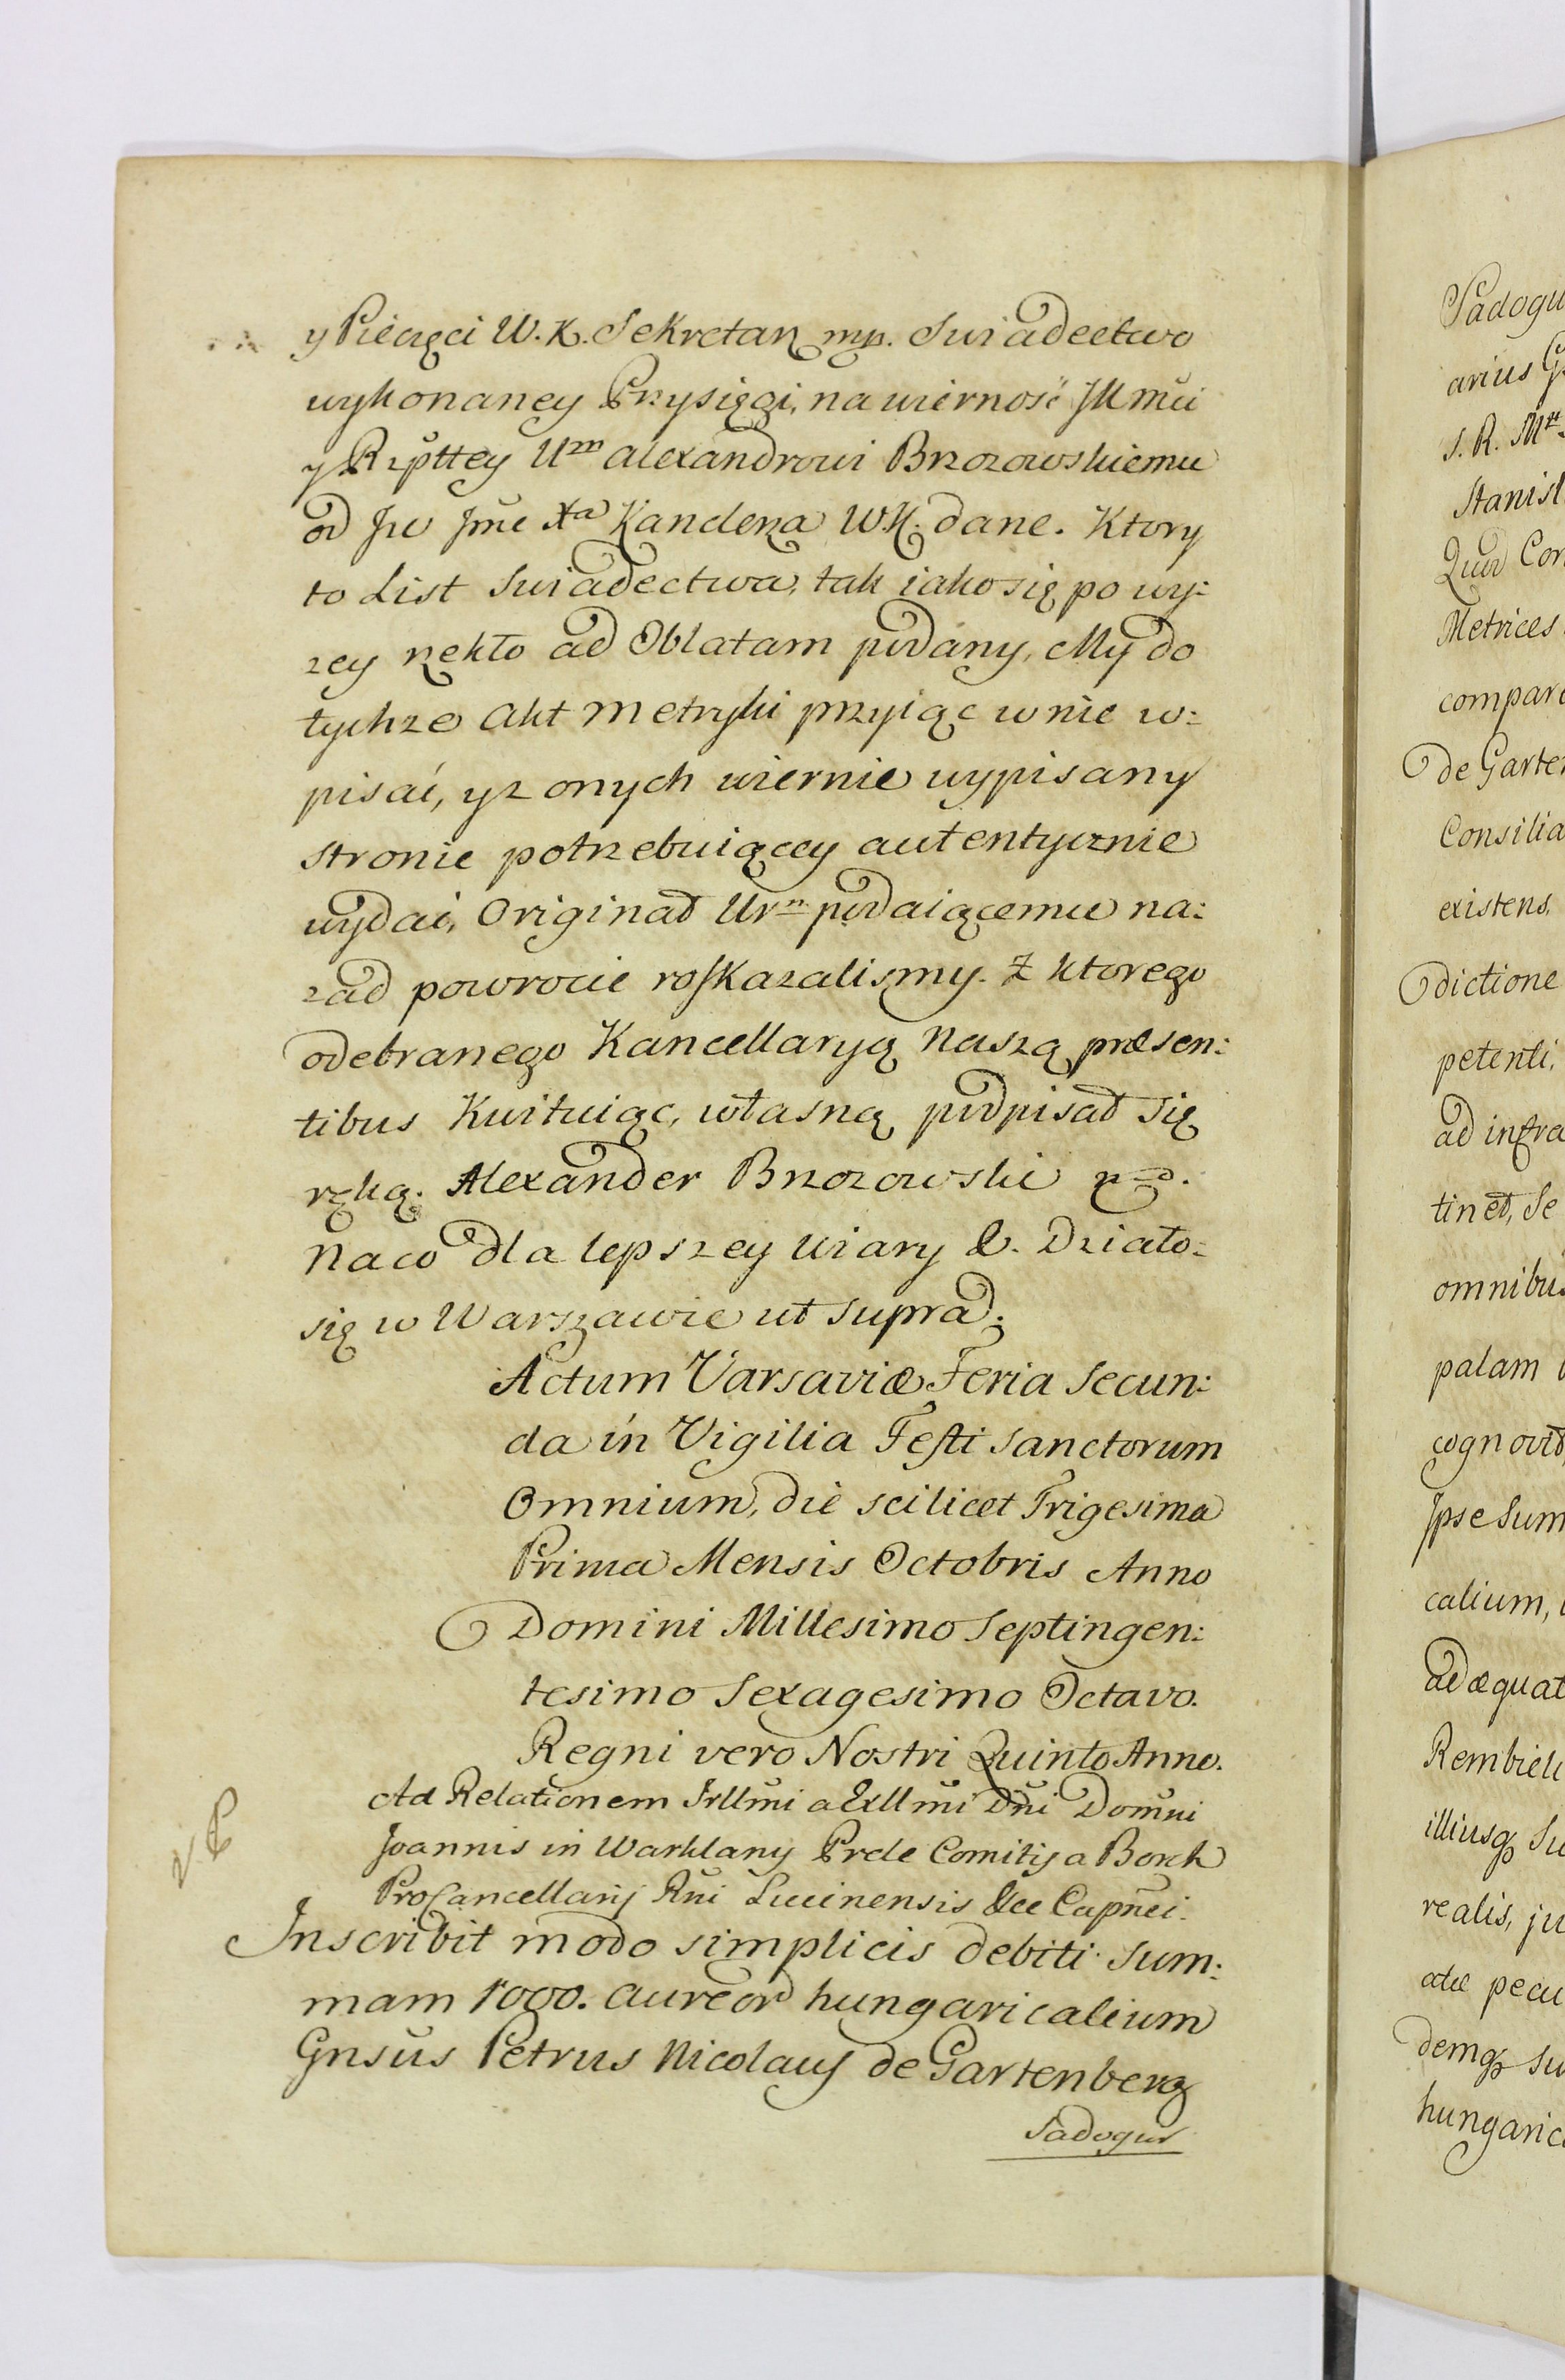 y Pieczęci W. K. Sekretarz mp. Swiadectwo
wykonaney Przysięgi, na wierność JKMci
y Rzpttey Urn Alexandrowi Brzozowskiemu
od Jw Jme Xa Kanclerza WK. dane. Ktory
to List Swiadectwa, tak iako się po wy:
zey rzekło ad Oblatam podany, My do
tychze Akt Metryki przyiąc w nie w:
pisać, y z onych wiernie wypisany
stronie potrzebuiącey autentycznie
wydać, Originał Urn podaiącemu na:
zad powrocić roskazalismy. Z ktorego
odebranego Kancellaryą Naszą præsen:
tibus Kwituiąc, własną podpisał się
ręką. Alexander Brzozowski
Na co dla lepszey wiary &. Działo:
się w Warszawie ut supra.
Actum Varsaviæ Feria Secun:
da in Vigilia Festi Sanctorum
Omnium, die scilicet Trigesima
Prima Mensis Octobris Anno
Domini Millesimo Septingen:
tesimo Sexagesimo Octavo.
Regni vero Nostri Quinto Anno.
Ad Relationem Illmi a Exllmi Dni Domini
Joannis in Warklany Prele Comitis a Borch
ProCancellarij Rni Lucinensis &ce Capnei.
Inscribit modo simplicis debiti Sum:
mam 1000. aureor hungaricalium
Gnsus Petrus Nicolaus de Gartenberg
Sadogur
Sadogu
arius
S. R. Mtt
Stanisl
Quod Cor
Metrices
compare
de Garter
Consilia
existens.
dictione
petenti,
ad infra
tinet, Se
omnibus
palam
cognovit
Ipse Sum
calium,
adæquat
Rembieli
illiusq Su
realis, ju
atæ pecu
demq su
hungaric